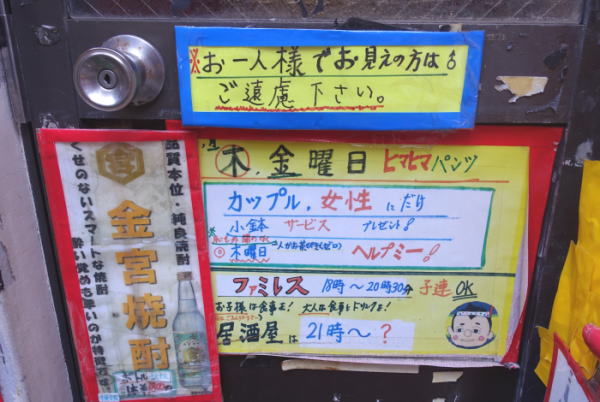 ※お一人様でお見えの方は♂
ご遠慮下さい。
木.金曜日 ヒマヒマパンツ
カップル.女性にだけ
小鉢 サービス プレゼント!
木曜日
ヘルプミー!
ファミレス 18時〜20時30分 子連OK
お子様は食事を! 大人は食事とドリンクを!
居酒屋は 21時〜?
品質本位・純良焼酎
金宮焼酎
くせのないスマートな焼酎
酔い覚めも早いのが特徴です